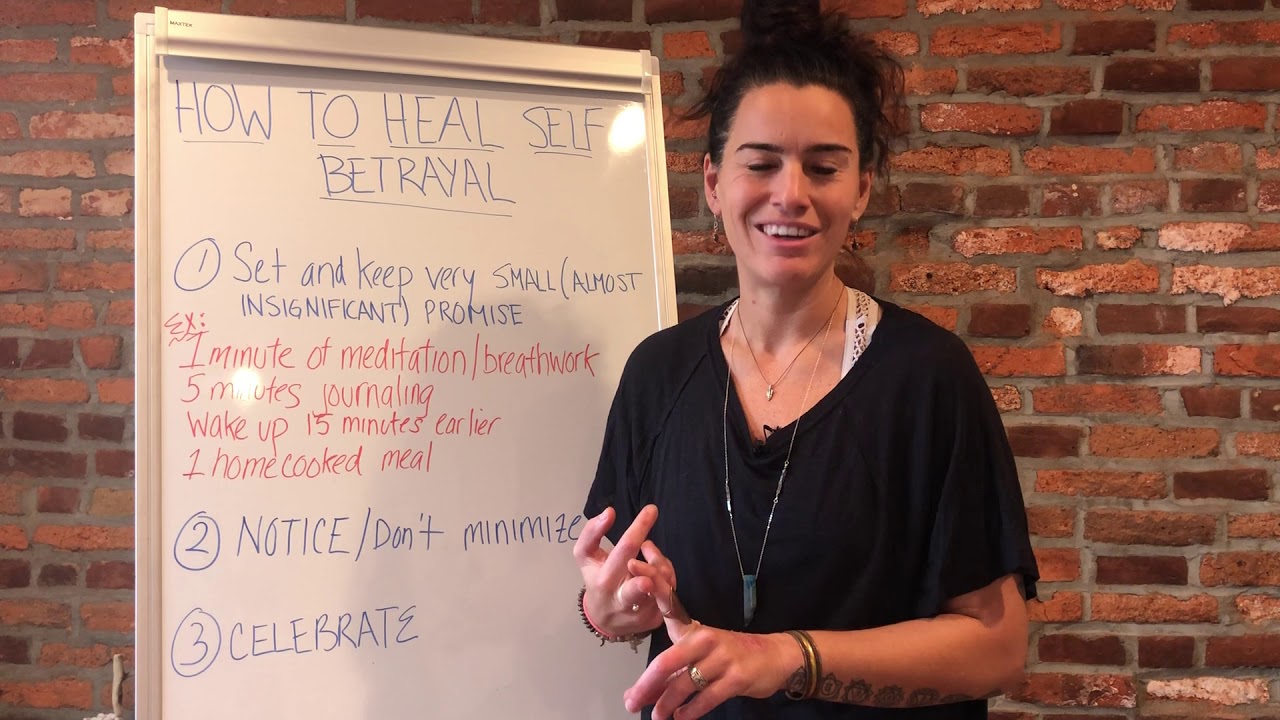 MASTER
HOW TO HEAL SELF
BETRAYAL
1 Set and keep very SMALL (ALMOST
INSIGNIFICANT) PROMISE
EX:
1 minute of meditation/breathwork
5 minutes journaling
Wake up 15 minutes earlier
1 homecooked meal
2 NOTICE/Don't minimize
3 CELEBRATE